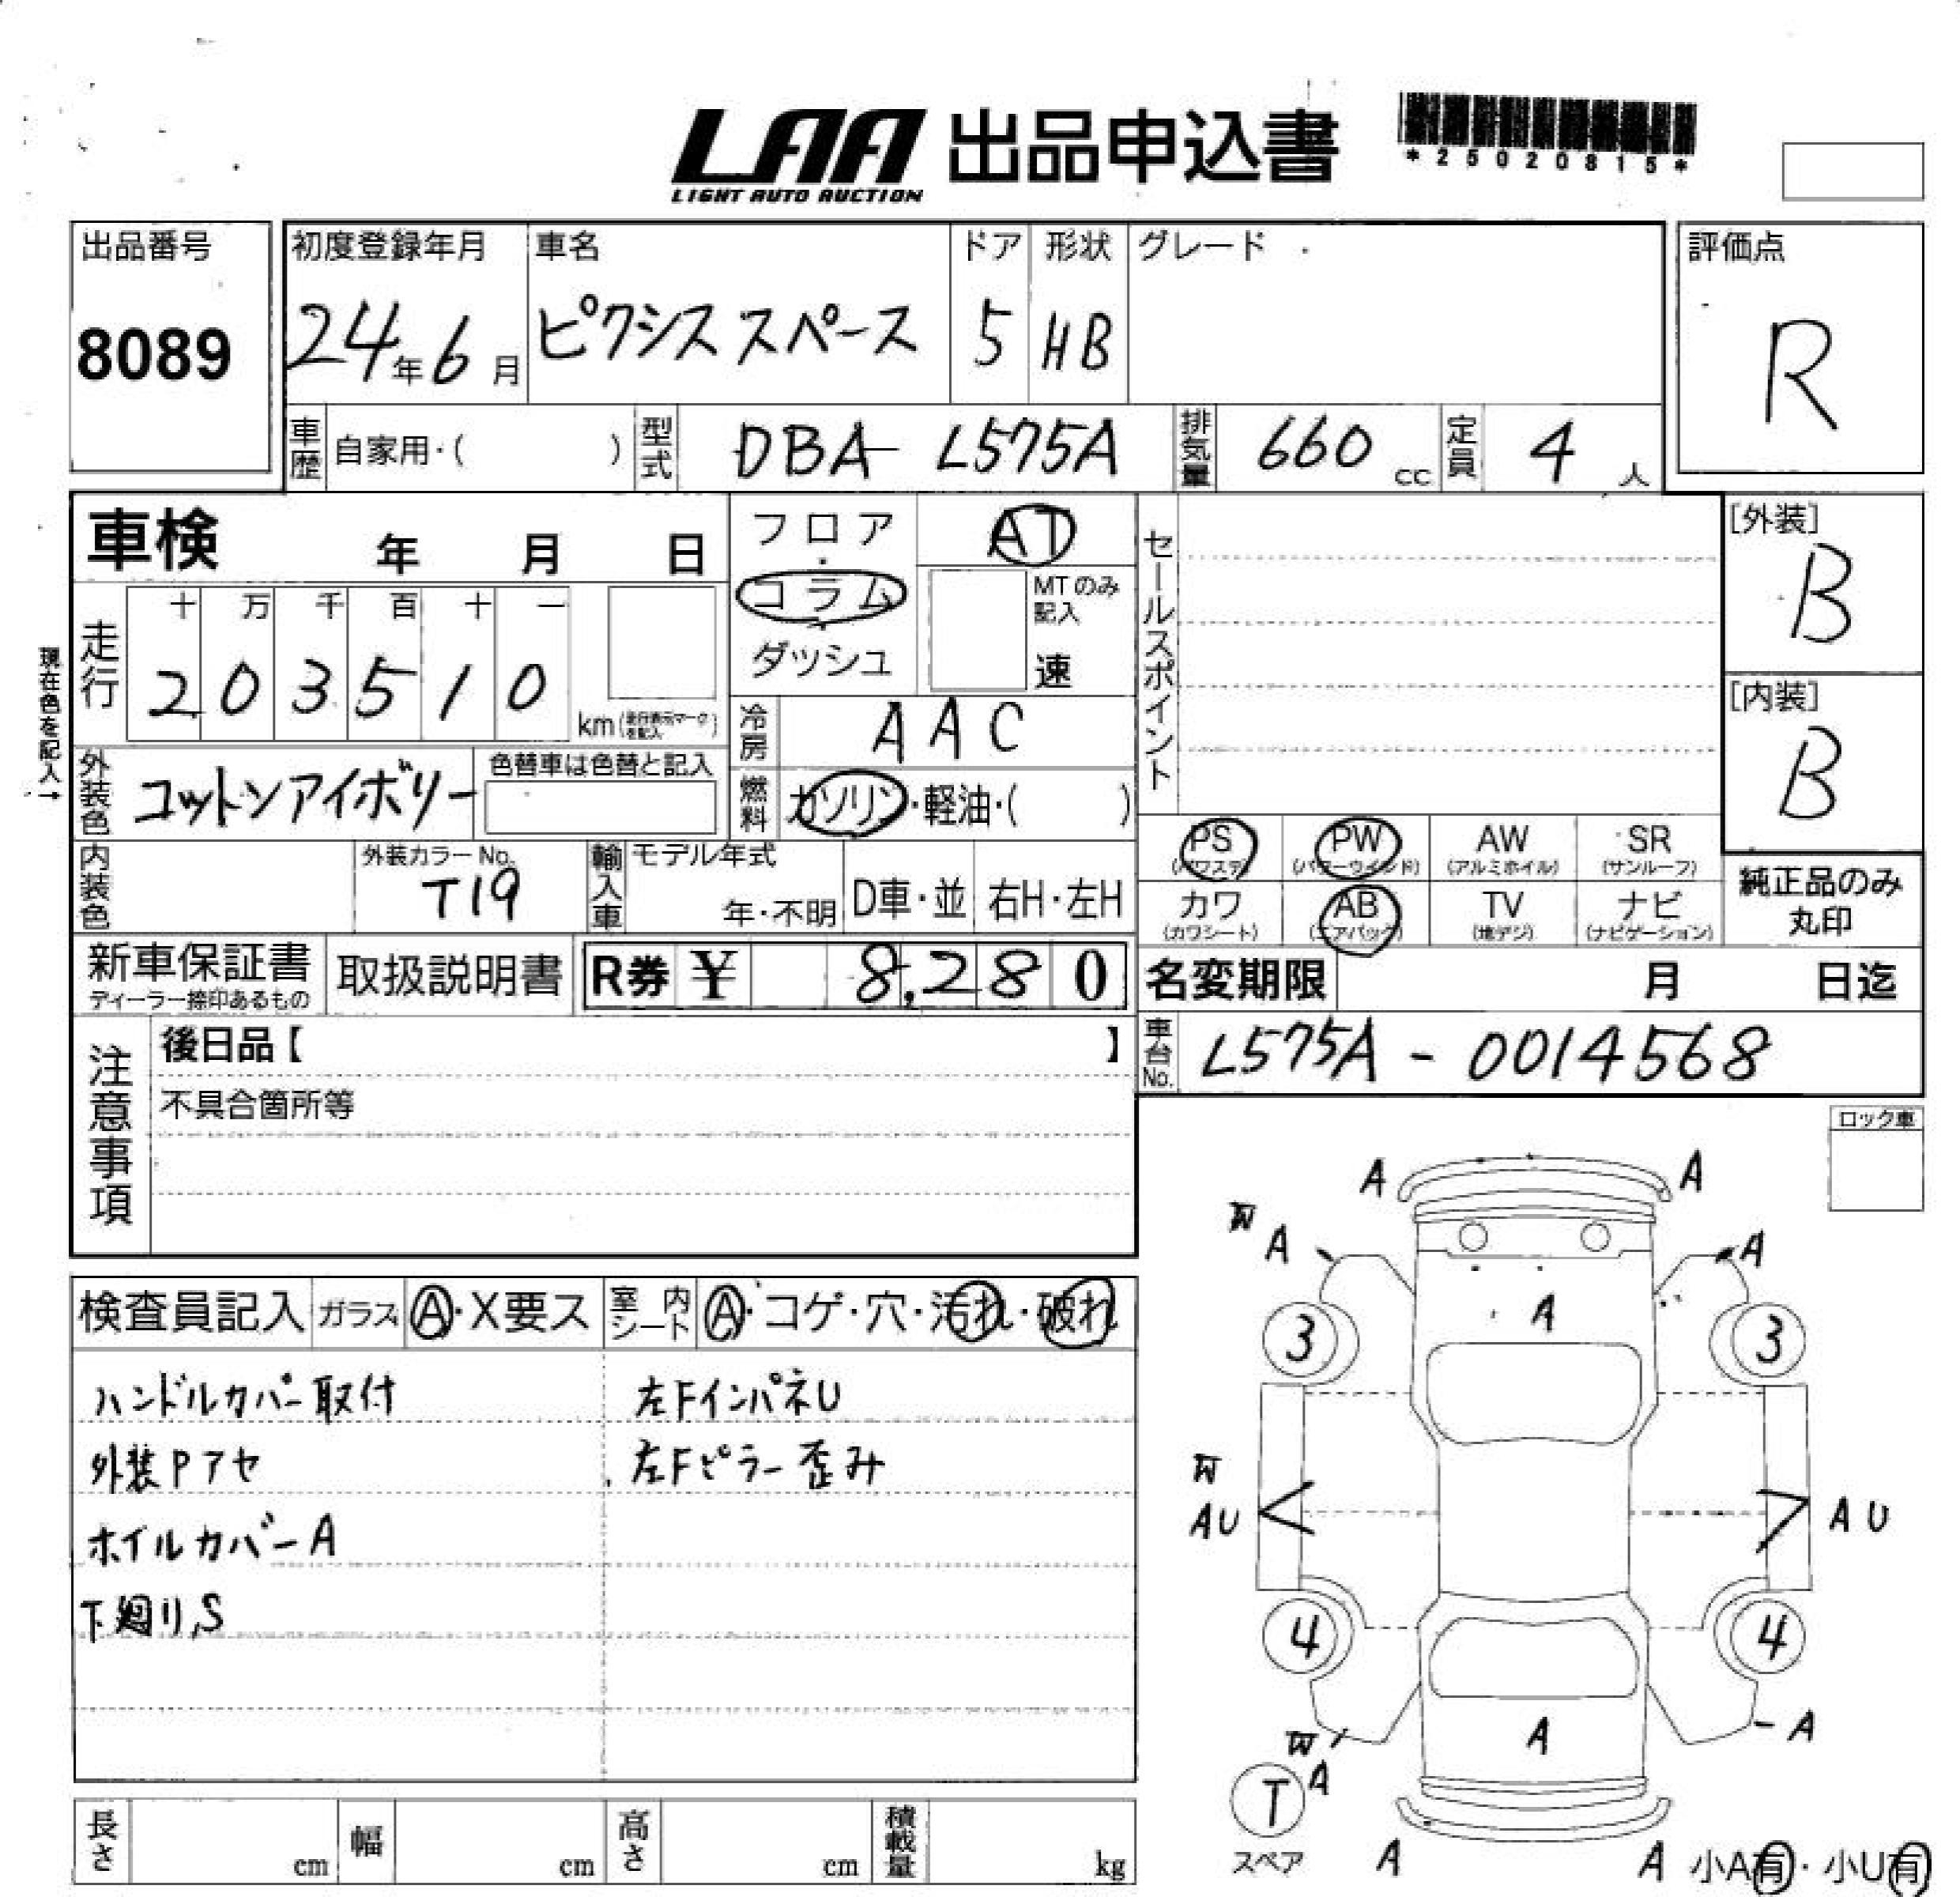 LAA 出品申込書
LIGHT AUTO AUCTION
*25020815*
出品番号
8089
初度登録年月
24年6月
車名
ピクシススペース
ドア
5
形状
HB
グレード
評価点
R
車歴 自家用・( )
型式 DBA- L575A
排気量 660 cc
定員 4 人
車検 年 月 日
フロア・コラム・ダッシュ
AT
MTのみ記入
速
セールスポイント
[外装]
B
[内装]
B
現在色を記入→
走行
十 万 千 百 十 一
2 0 3 5 1 0
km(走行表示マークを記入)
冷房 AAC
外装色 コットンアイボリー
色替車は色替と記入
燃料 ガソリン・軽油・( )
PS (パワステ)
PW (パワーウインド)
AW (アルミホイル)
SR (サンルーフ)
カワ (カワシート)
AB (エアバック)
TV (地デジ)
ナビ (ナビゲーション)
純正品のみ
丸印
内装色
外装カラーNo.
T19
輸入車
モデル年式
年・不明
D車・並
右H・左H
新車保証書
ディーラー捺印あるもの
取扱説明書
R券 ¥ 8,280
名変期限 月 日迄
車台No. L575A - 0014568
注意事項
後日品【 】
不具合箇所等
ロック車
検査員記入 ガラス A・X要ス
室内シート A・コゲ・穴・汚れ・破れ
ハンドルカバー取付
外装Pアセ
ホイルカバーA
下廻り,S
左FインパネU
左Fピラー歪み
A A
W A A
3 A 3
W
AU AU
4 4
W A A A
T
スペア
A A
小A有・小U有
長さ cm
幅 cm
高さ cm
積載量 kg